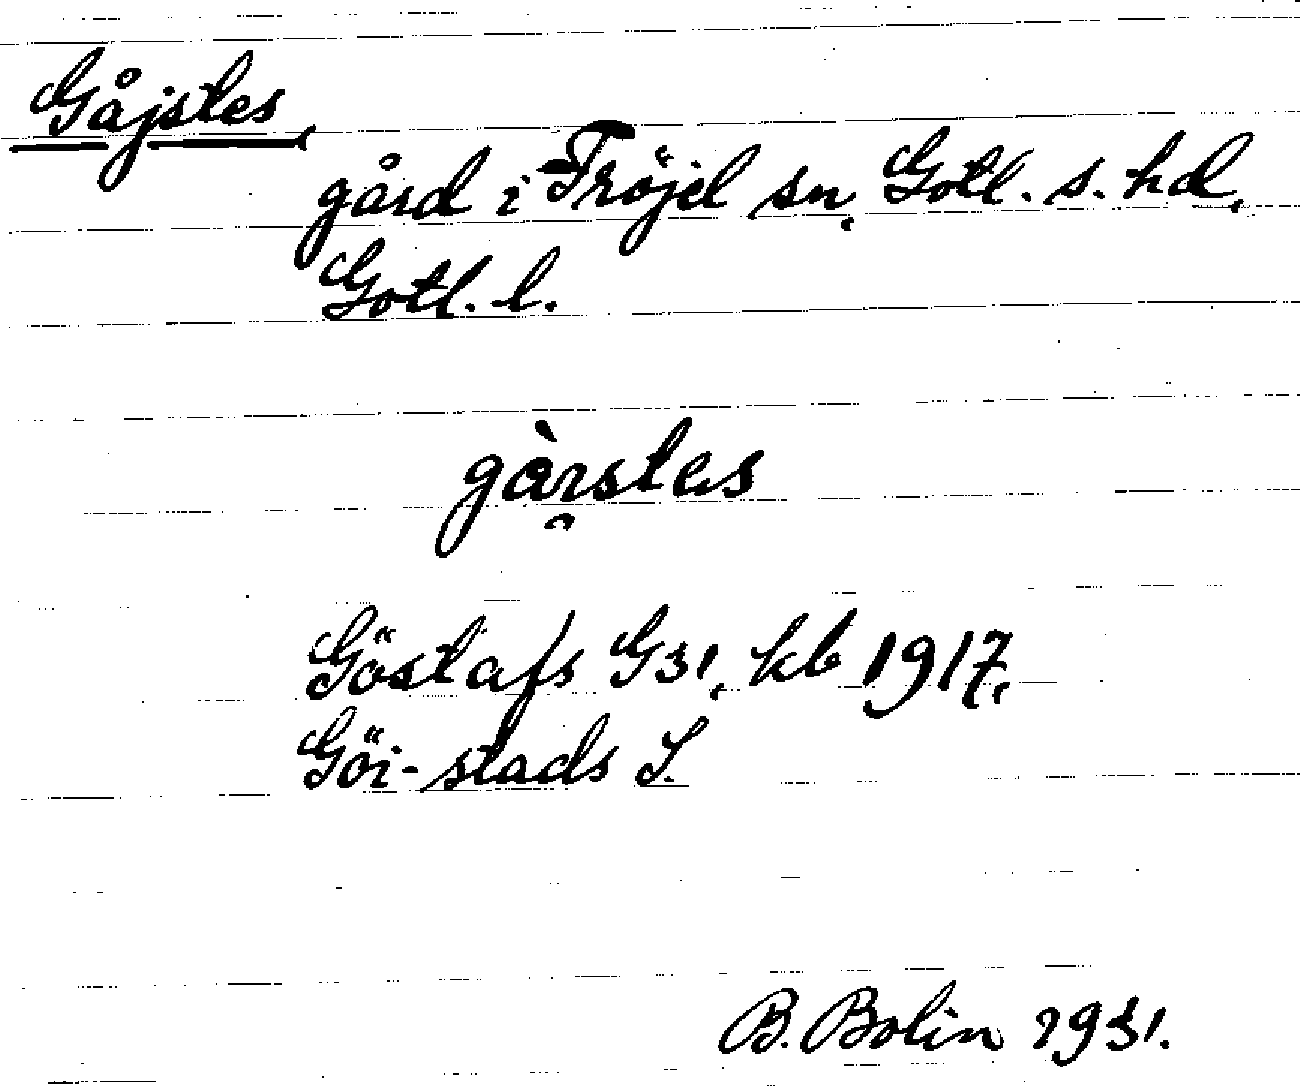 Gåjstes,
gård i Fröjel sn, Gotl. s. hd,
Gotl. l.
gàı̯stes
Göstafs G31, kb 1917,
Göi-stads S.
B. Bolin 1931.